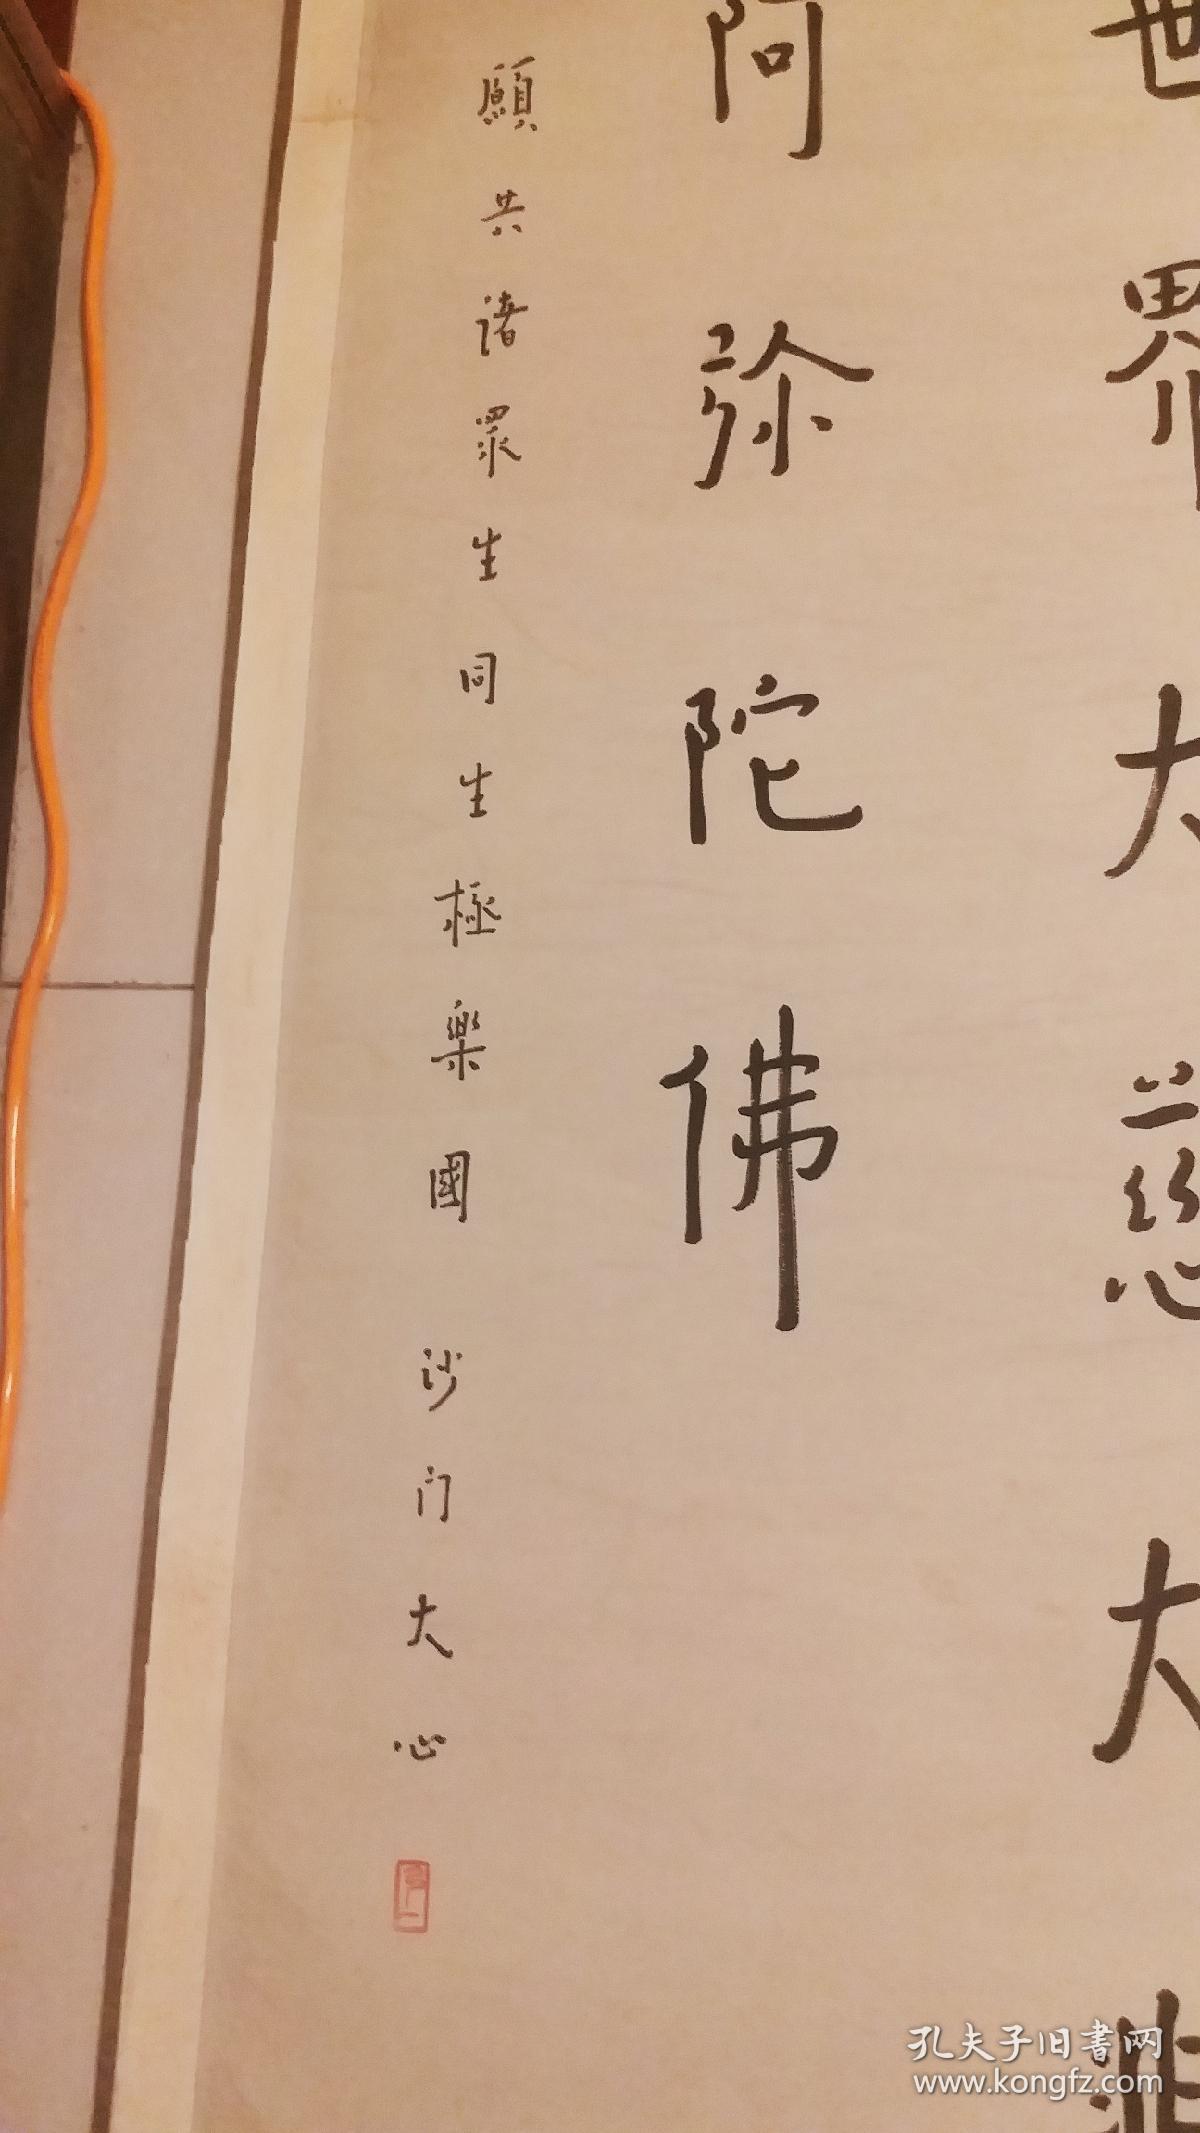 世界大慈大悲
阿弥陀佛
願共诸眾生同生極樂國 沙门大心
孔夫子旧書网
www.kongfz.com